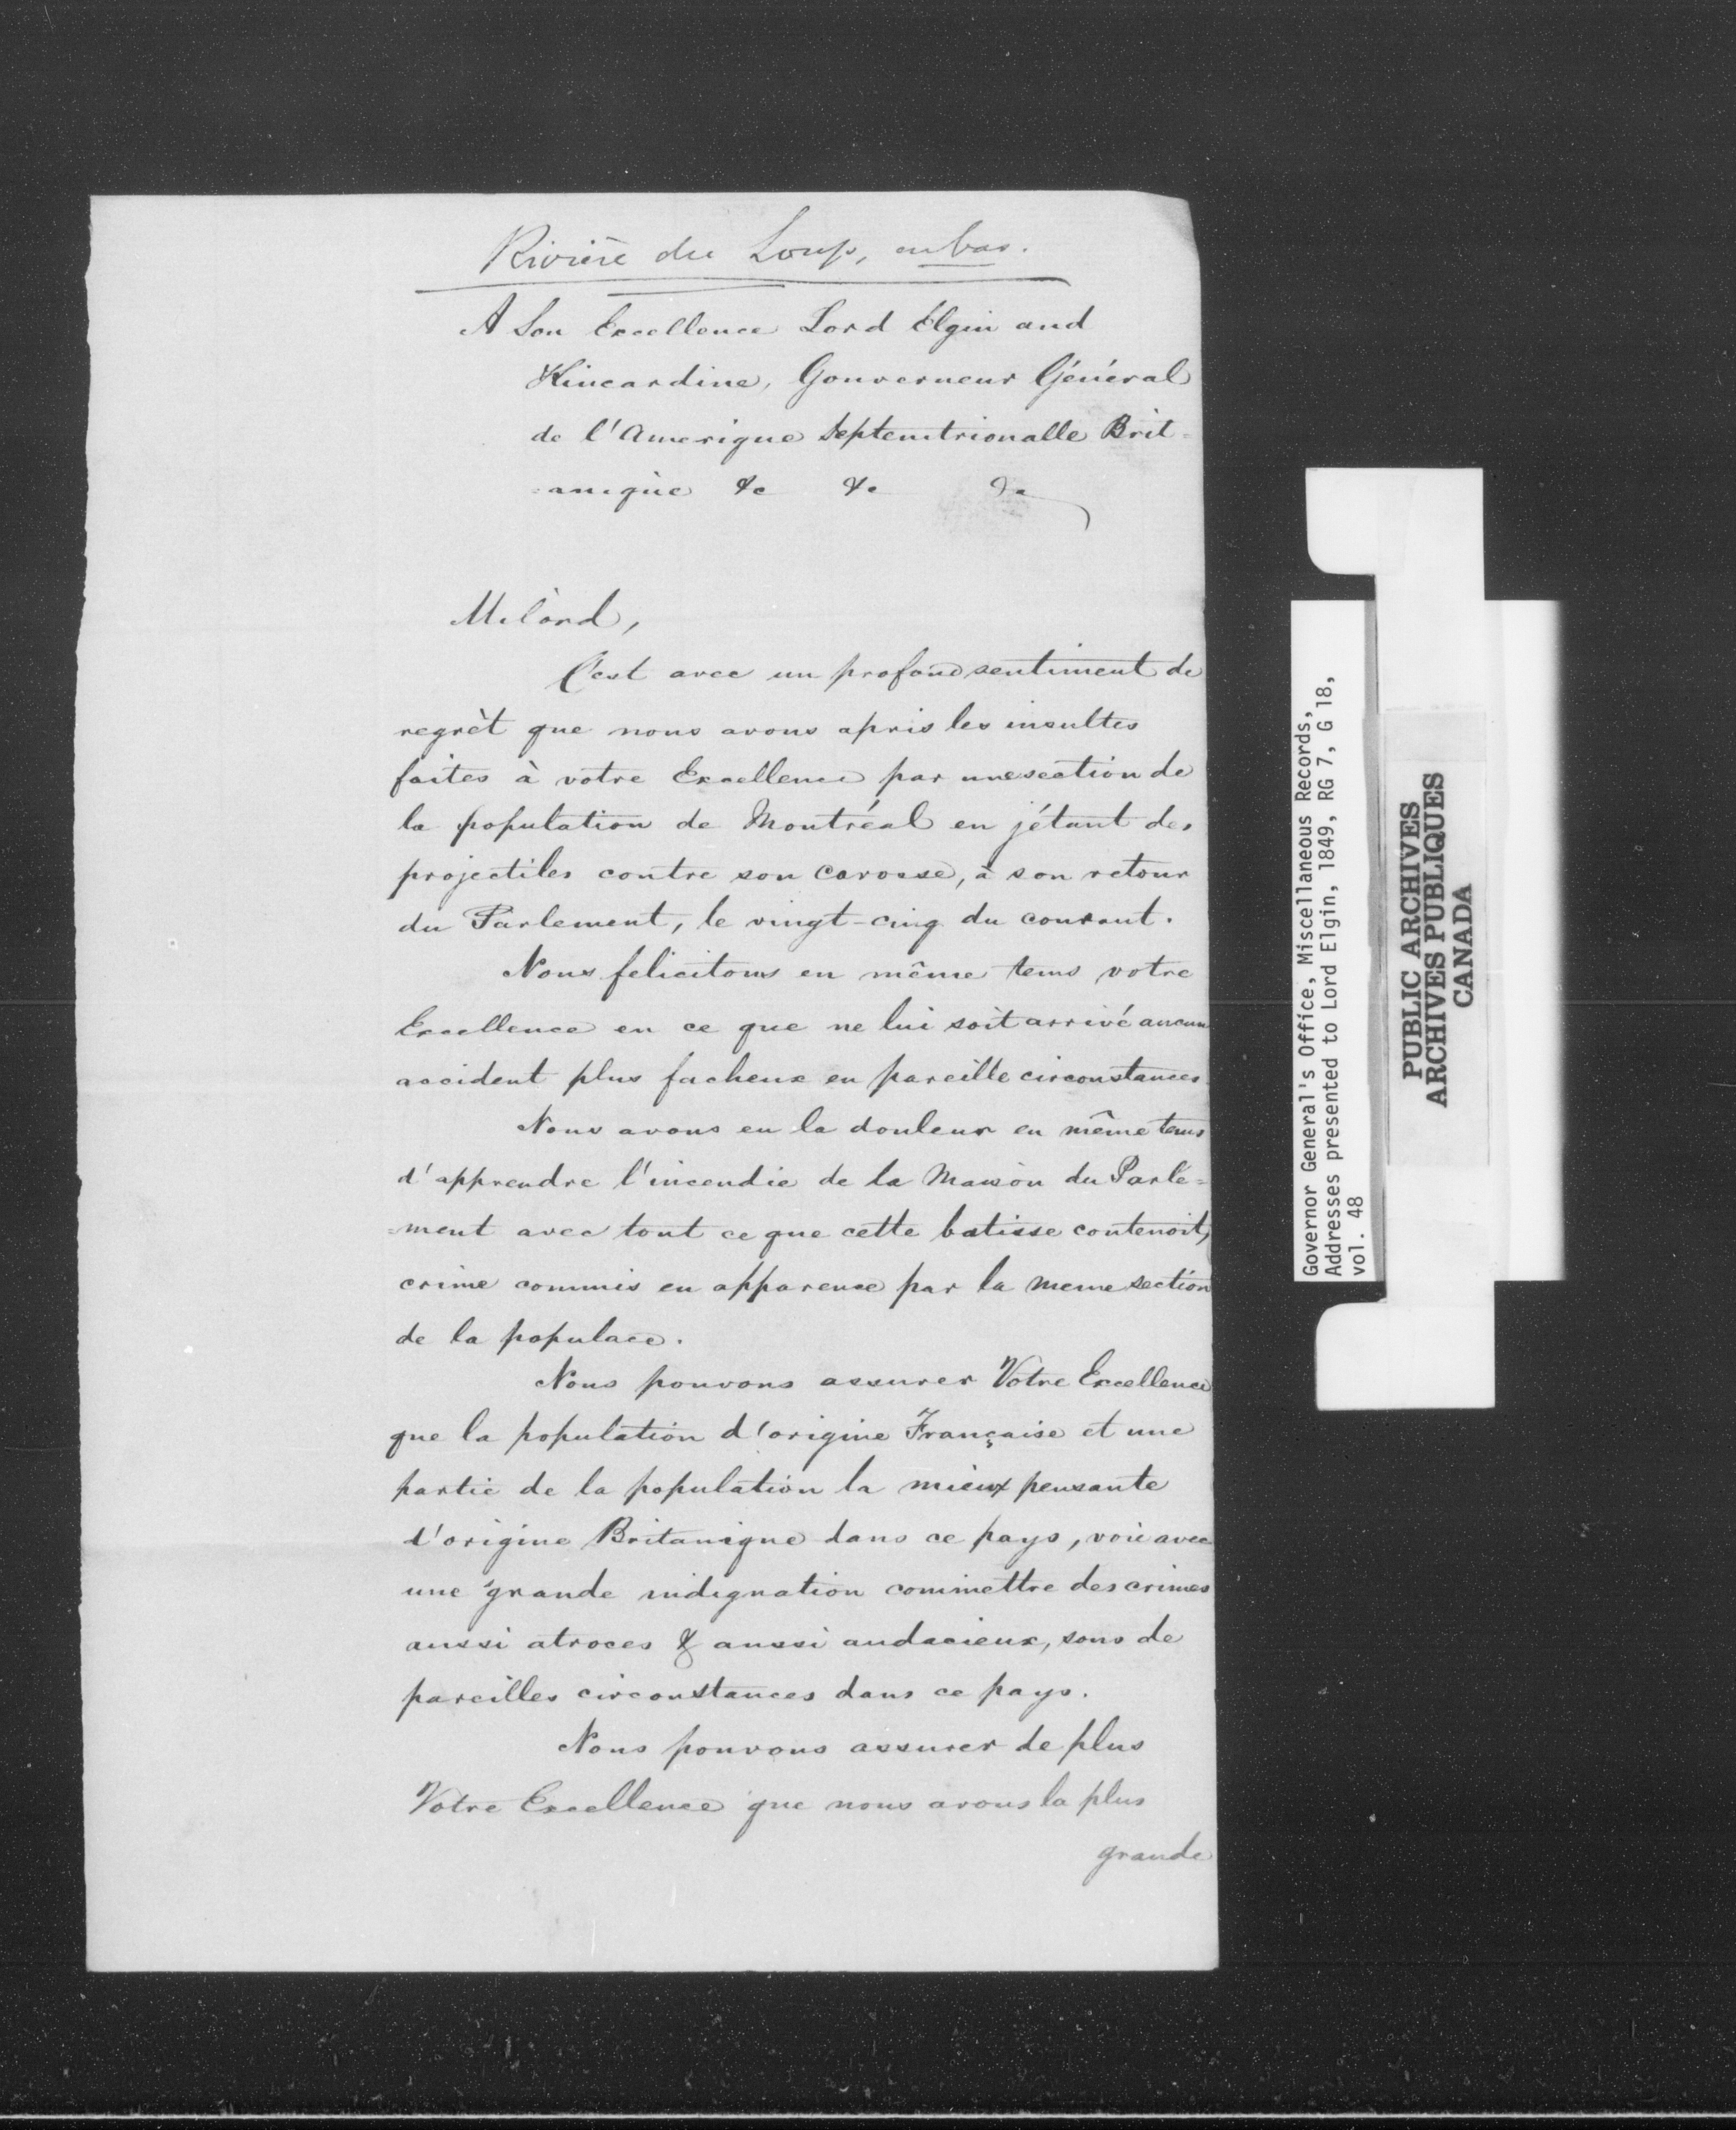 Rivière du Loup, en bas.
A Son Excellence Lord Elgin and
Kincardine, Gouverneur Général
de l'Amerique Septemtrionalle Brit=
=anique &c &c &c
Milord,
C'est avec un profond sentiment de
regrèt que nous avons apris les insultes
faites à votre Excellence par une section de
la population de Montréal en jétant des
projectiles contre son carosse, à son retour
du Parlement, le vingt-cinq du courant.
Nous felicitons en même tems votre
Excellence en ce que ne lui soit arrivé aucun
accident plus facheux en pareille circonstances.
Nous avons eu la douleur en même tems
d'apprendre l'incendie de la Maison du Parle=
=ment avec tout ce que cette batisse contenoit,
crime commis en apparence par la meme section
de la populace.
Nous pouvons assurer Votre Excellence
que la population d'origine Française et une
partie de la population la mieux pensante
d'origine Britanique dans ce pays, voie avec
une grande indignation commettre des crimes
aussi atroces & aussi audacieux, sous de
pareilles circonstances dans ce pays.
Nous pouvons assurer de plus
Votre Excellence que nous avons la plus
grande
Governor General's Office, Miscellaneous Records,
Addresses presented to Lord Elgin, 1849, RG 7, G 18,
vol. 48
PUBLIC ARCHIVES
ARCHIVES PUBLIQUES
CANADA